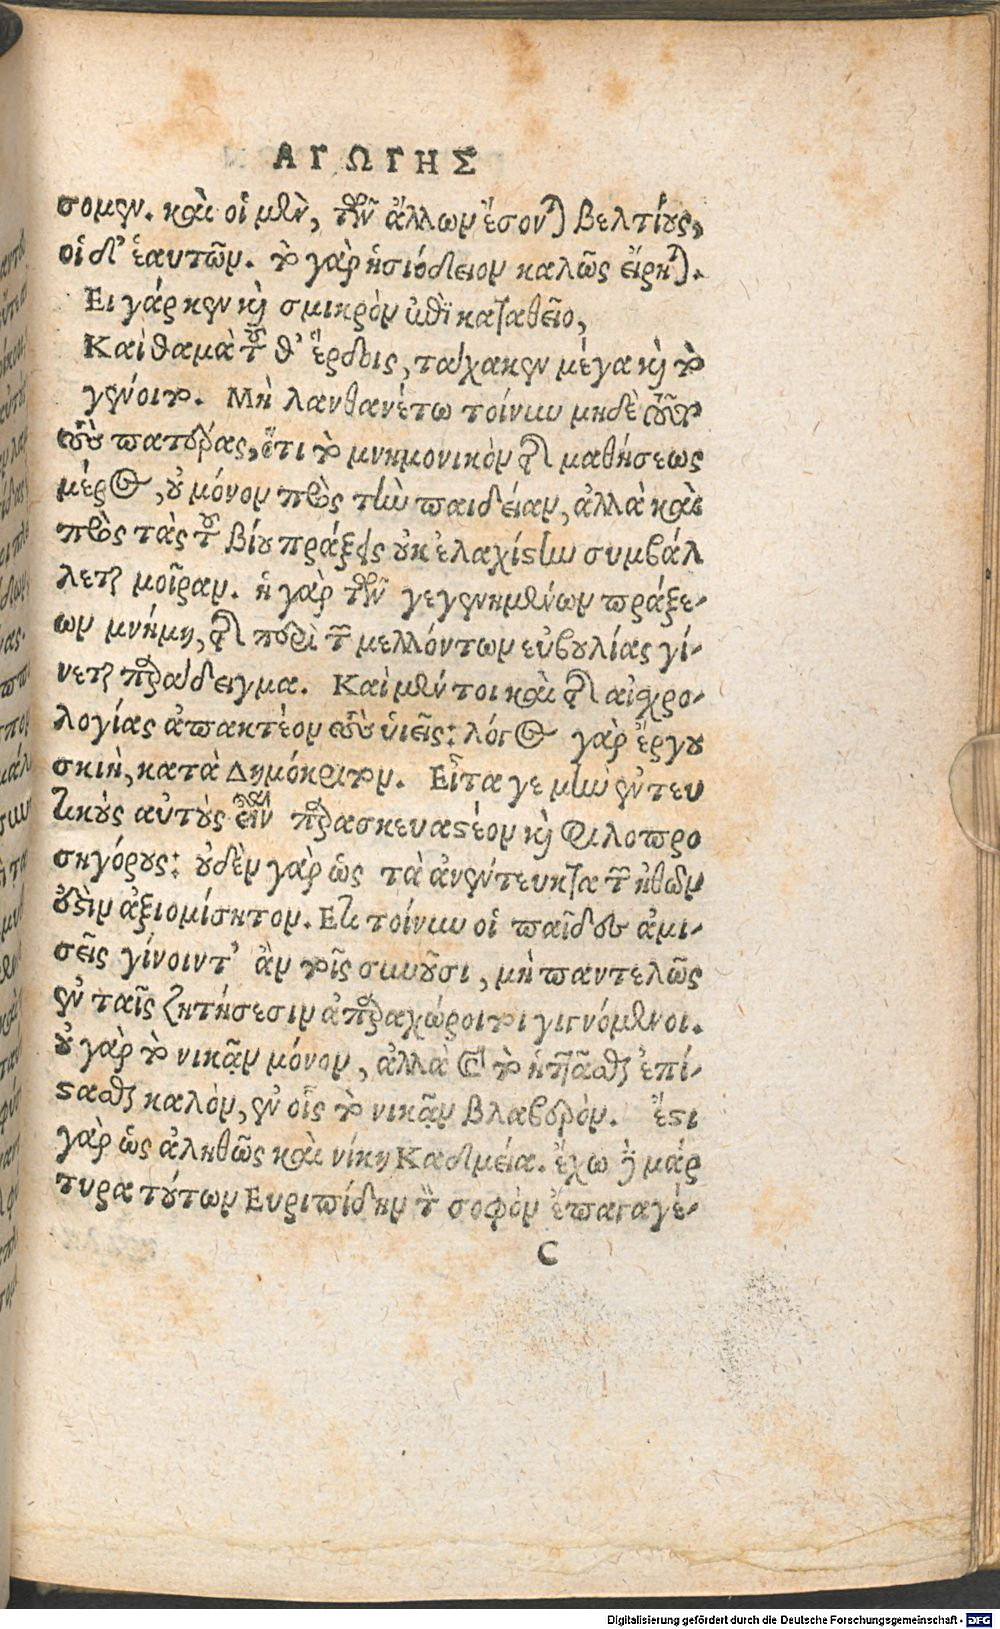 ΑΓΩΓΗΣ
σομεν. καὶ οἱ μὲν, τῶν ἄλλων ἔσονται βελτίους,
οἱ δ' ἑαυτῶν. τὸ γὰρ ἡσιόδειον καλῶς εἴρηται.
Ει γάρ κεν καὶ σμικρὸν ἐπὶ καταθεῖο,
Καὶ θαμὰ τοῦθ' ἕρδεις, τάχα κεν μέγα καὶ τὸ
γένοιτο. Μὴ λανθανέτω τοίνυν μηδὲ τοῦτο
τοὺς πατέρας, ὅτι τὸ μνημονικὸν τῆς μαθήσεως
μέρος, οὐ μόνον πρὸς τὴν παιδείαν, ἀλλὰ καὶ
πρὸς τὰς τοῦ βίου πράξεις οὐκ ἐλαχίστην συμβάλ
λεται μοῖραν. ἡ γὰρ τῶν γεγενημένων πράξε-
ων μνήμη, τῆς περὶ τῶν μελλόντων εὐβουλίας γί-
νεται παράδειγμα. Καὶ μέντοι καὶ τῆς αἰσχρο-
λογίας ἀπακτέον τοὺς υἱεῖς: λόγος γὰρ ἔργου
σκιὴ, κατὰ Δημόκριτον. Εἶτά γε μὴν ἐντευ
κτικοὺς αὐτοὺς εἶναι παρασκευαστέον καὶ φιλοπρο
σηγόρους: οὐδὲν γὰρ ὡς τὰ ἀνέντευκτα τῶν ἠθῶν
οὕτως ἐστὶν ἀξιομίσητον. Ετι τοίνυν οἱ παῖδες ἀμι-
σεῖς γίνοιντ' ἂν τοῖς συνοῦσι, μὴ παντελῶς
ἐν ταῖς ζητήσεσιν ἀπαραχώρητοι γιγνόμενοι.
οὐ γὰρ τὸ νικᾷν μόνον, ἀλλὰ καὶ τὸ ἡττᾶσθαι ἐπί-
στασθαι καλὸν, ἐν οἷς τὸ νικᾷν βλαβερόν. ἔστι
γὰρ ὡς ἀληθῶς καὶ νίκη Καδμεία. ἔχω δὲ μάρ
τυρα τούτων Ευριπίδην τὸν σοφὸν ἐπαγαγέ-
C
Digitalisierung gefördert durch die Deutsche Forschungsgemeinschaft - DFG